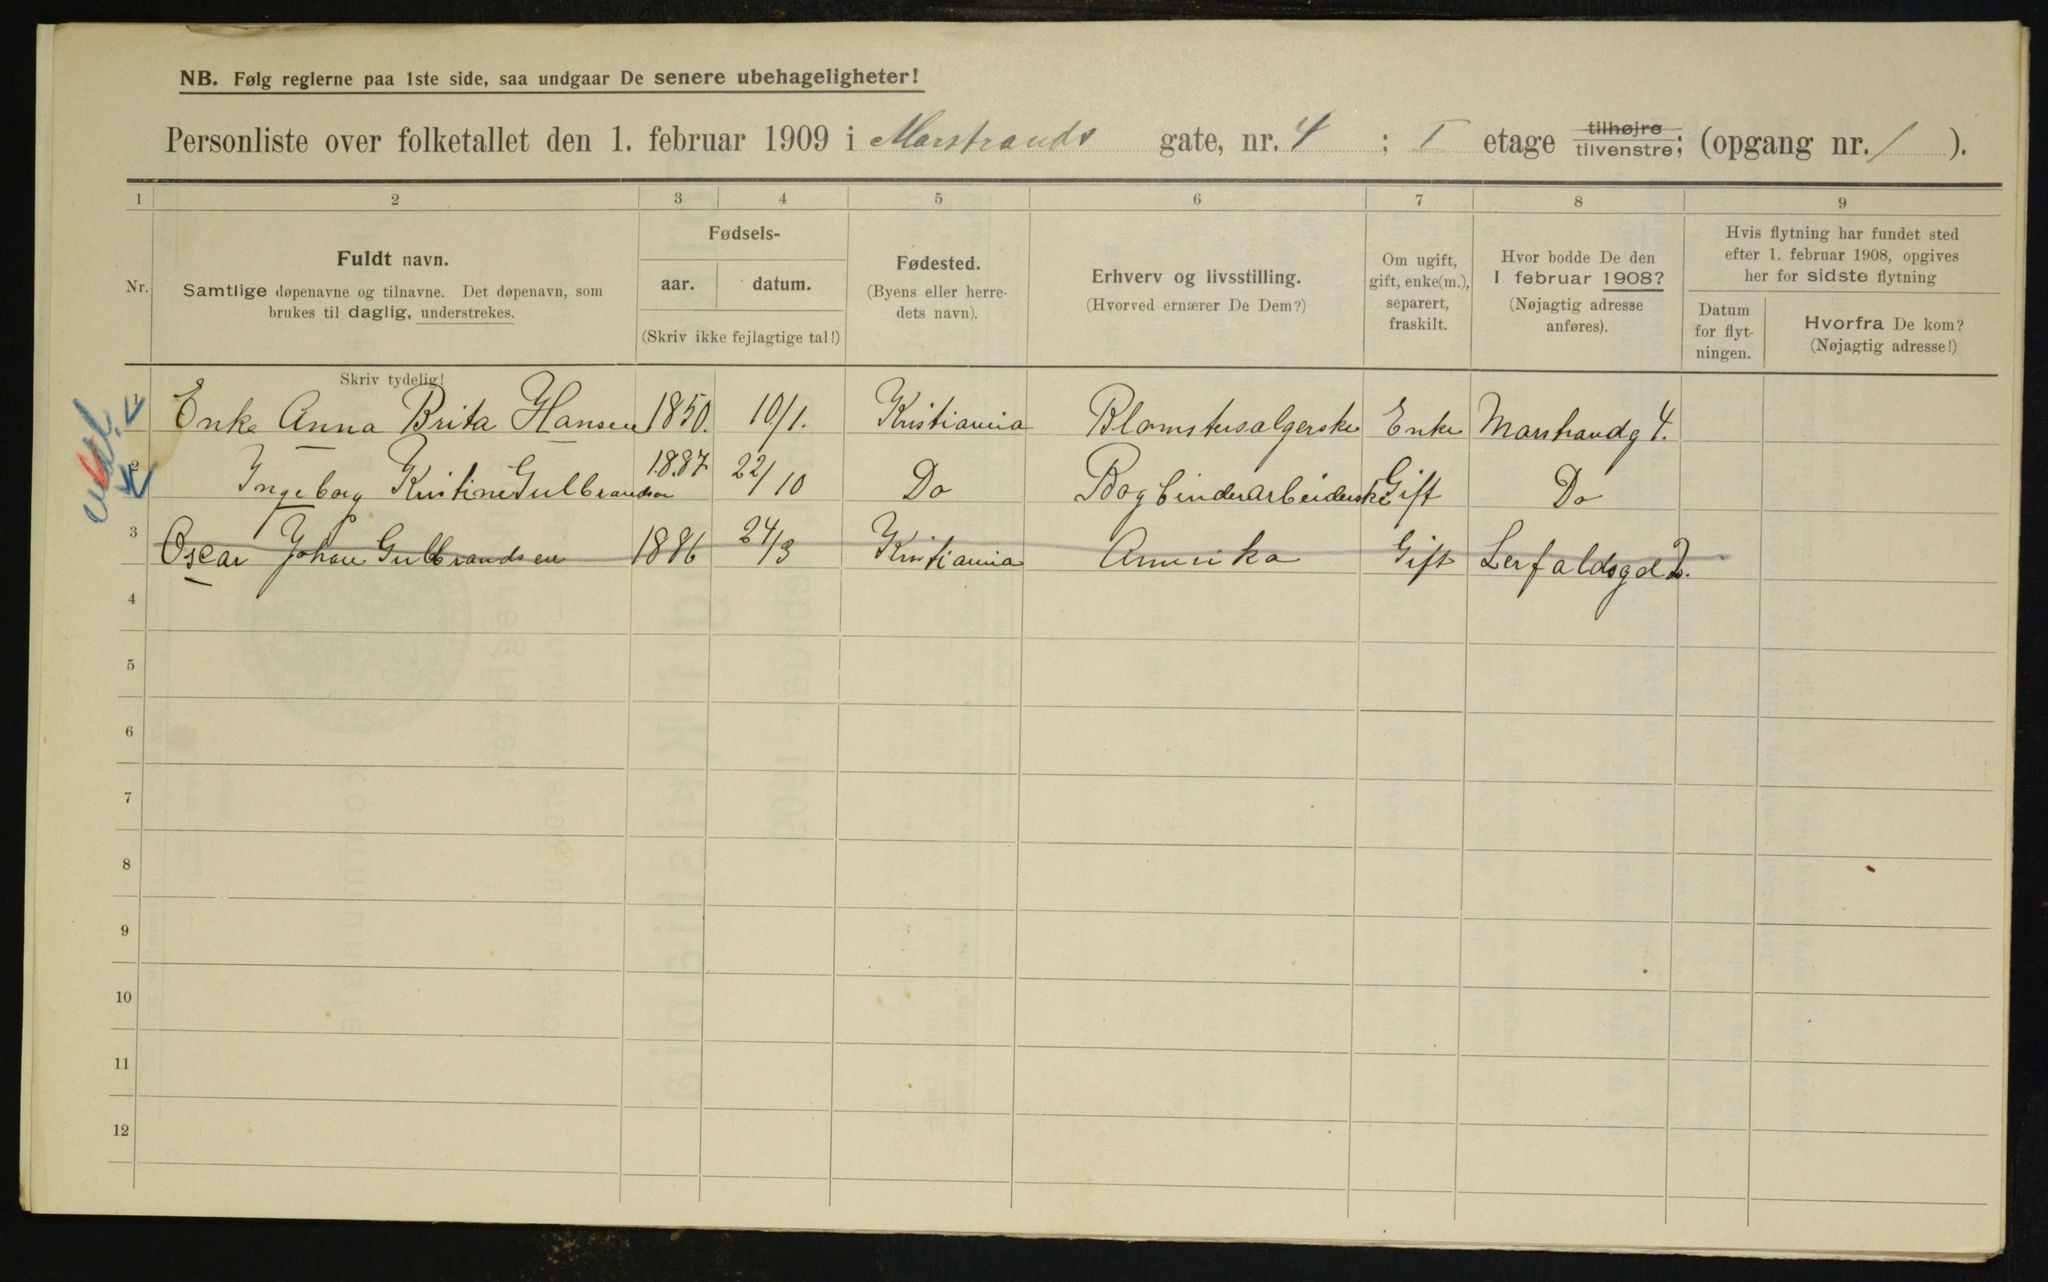 NB. Følg reglerne paa 1ste side, saa undgaar De senere ubehageligheter!
Personliste over folketallet den 1. februar 1909 i Marstrands gate, nr. 4 ; I etage tilhøjre tilvenstre; (opgang nr. 1 ).
1 2 3 4 5 6 7 8 9
Nr.
Fuldt navn.
Samtlige døpenavne og tilnavne. Det døpenavn, som
brukes til daglig, understrekes.
Skriv tydelig!
Fødsels-
aar. datum.
(Skriv ikke fejlagtige tal!)
Fødested.
(Byens eller herre-
dets navn).
Erhverv og livsstilling.
(Hvorved ernærer De Dem?)
Om ugift,
gift, enke(m.),
separert,
fraskilt.
Hvor bodde De den
1 februar 1908?
(Nøjagtig adresse
anføres).
Hvis flytning har fundet sted
efter 1. februar 1908, opgives
her for sidste flytning
Datum
for flyt-
ningen.
Hvorfra De kom?
(Nøjagtig adresse!)
1 Enke Anna Brita Hansen 1850. 10/1. Kristiania Blomstersalgerske Enke Marstrandg 4.
2 Ingeborg Kristine Gulbrandsen 1887 22/10 Do Bogbinderarbeiderske Gift Do
3 Oscar Johan Gulbrandsen 1886 24/3 Kristiania Amerika Gift Lerfaldsgd 2.
4
5
6
7
8
9
10
11
12